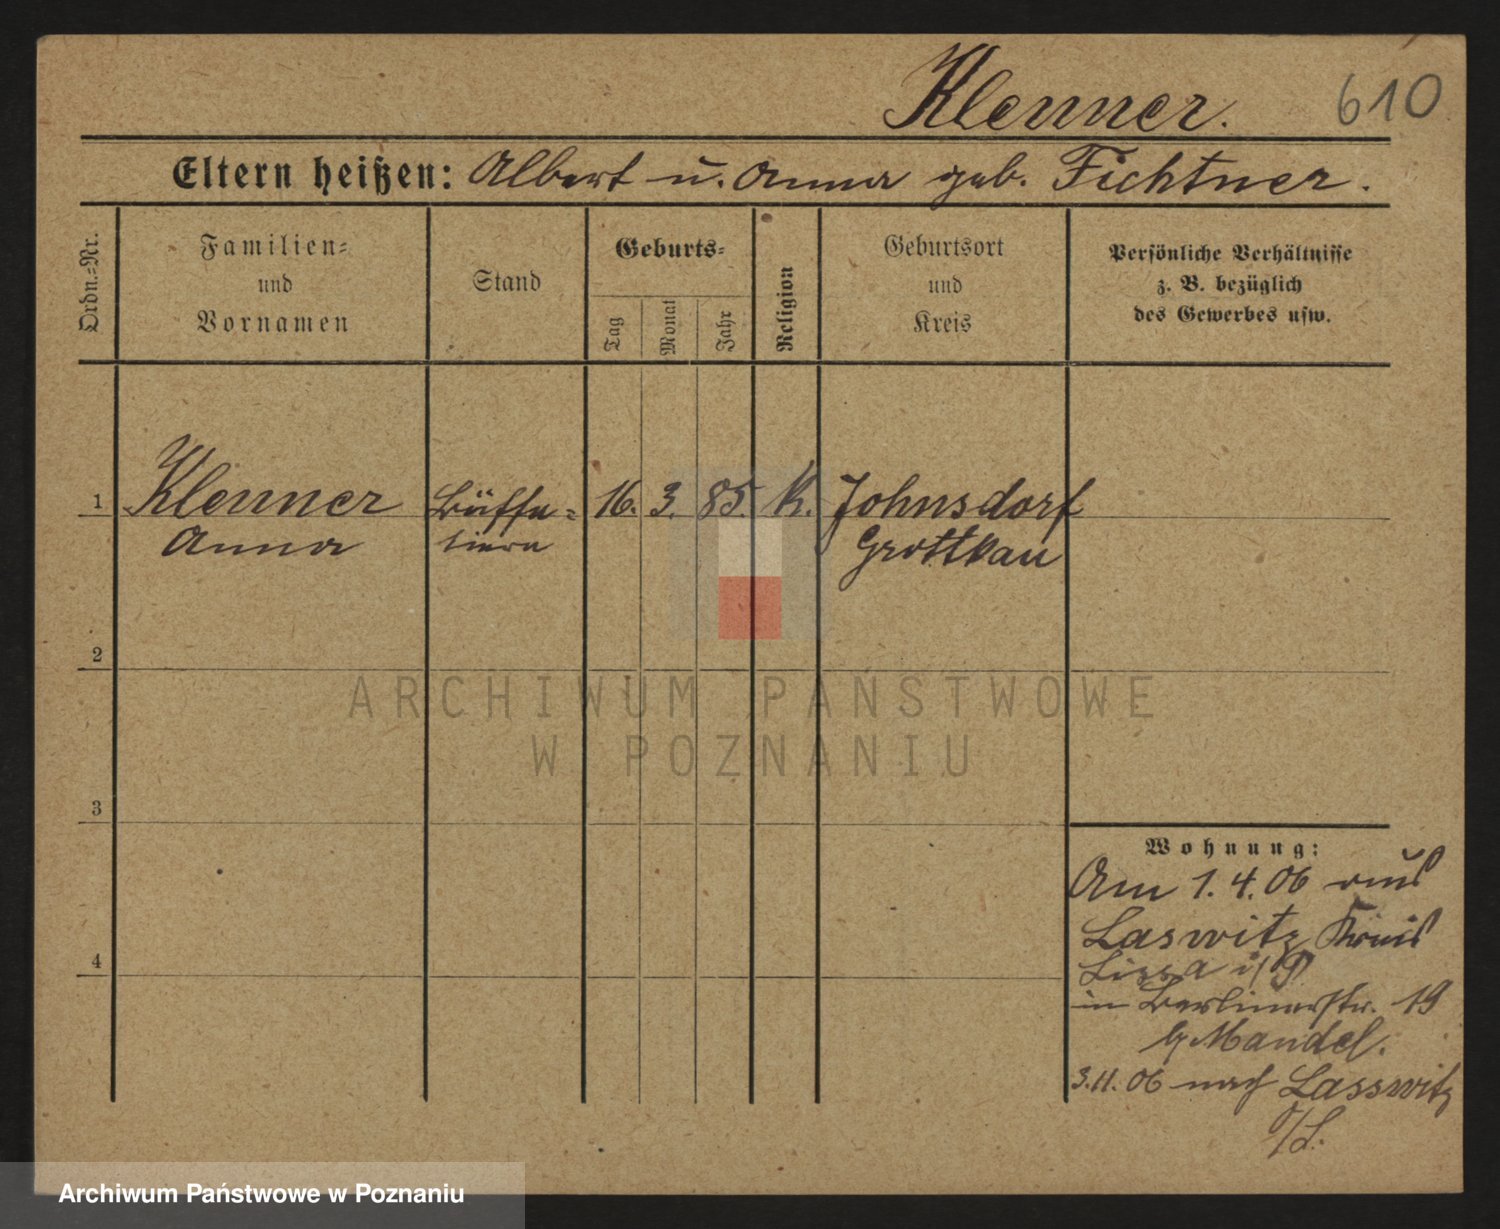 Klenner.
610
Eltern heißen: Albert u. Anna geb. Fichtner.
Ordn.=Nr.
Familien=
und
Vornamen
Stand
Geburts=
Tag
Monat
Jahr
Religion
Geburtsort
und
Kreis
Persönliche Verhältnisse
z. B. bezüglich
des Gewerbes usw.
1 Klenner Büffe= 16. 3. 85. K. Johnsdorf
Anna tiern Grottkau
2
3
4
ARCHIWUM PAŃSTWOWE
W POZNANIU
Wohnung:
Am 1.4.06 aus
Laswitz Kreis
Lissa i/P
in Berlinerstr. 19
b/ Mandel.
3.11.06 nach Lasswitz
/L.
Archiwum Państwowe w Poznaniu